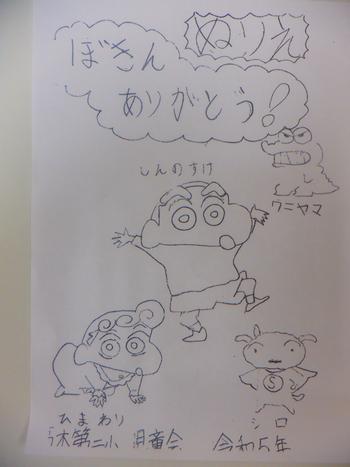 ぬりえ
ぼきん
ありがとう!
ワニヤマ
しんのすけ
S
ひまわり
シロ
木第二小 児童会 令和5年